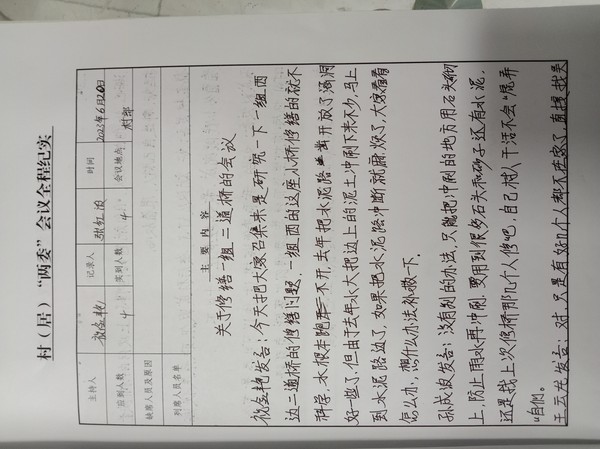 村（居）“两委”会议全程纪实
主持人 祝金艳 记录人 张红伯 时间 2023年6月20日
应到人数 4 实到人数 4 会议地点 村部
缺席人员及原因
列席人员名单
主要内容
关于修缮一组二道桥的会议
祝金艳发言：今天把大家召集来是研究一下一组西
边二道桥的修缮问题，一组西的这座小桥修缮的就不
科学，水根本跑不开，去年把水泥路断开放了涵洞
好一些了，但由于去年水大把边上的泥土冲刷下来不少，马上
到水泥路边了，如果把水泥路冲断就麻烦了，大家看看
怎么办，想什么办法补救一下。
孙成波发言：没有别的办法，只能把冲刷的地方用石头砌
上，防止雨水再冲刷，要用到很多石头和砂子还有水泥，
还是找上次修桥那几个人修吧，自己村人干活不会“糊弄
”咱们。
王云龙发言：对，只是有好几个人都不在家了，直接找吴